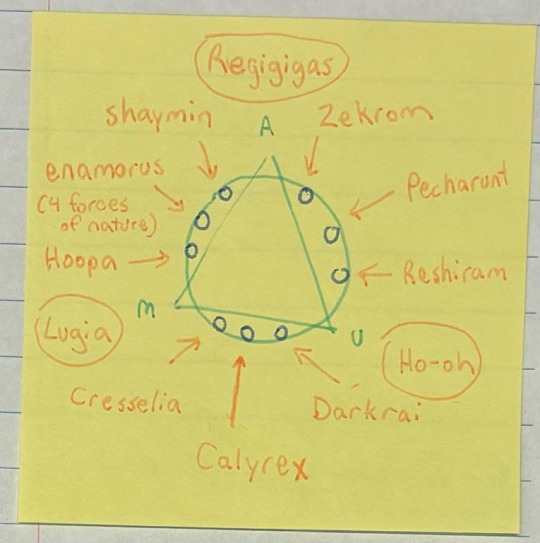 Regigigas
shaymin
Zekrom
A
enamorus
(4 forces
of nature)
Pecharunt
Hoopa
Reshiram
M
U
Lugia
Ho-oh
Cresselia
Darkrai
Calyrex